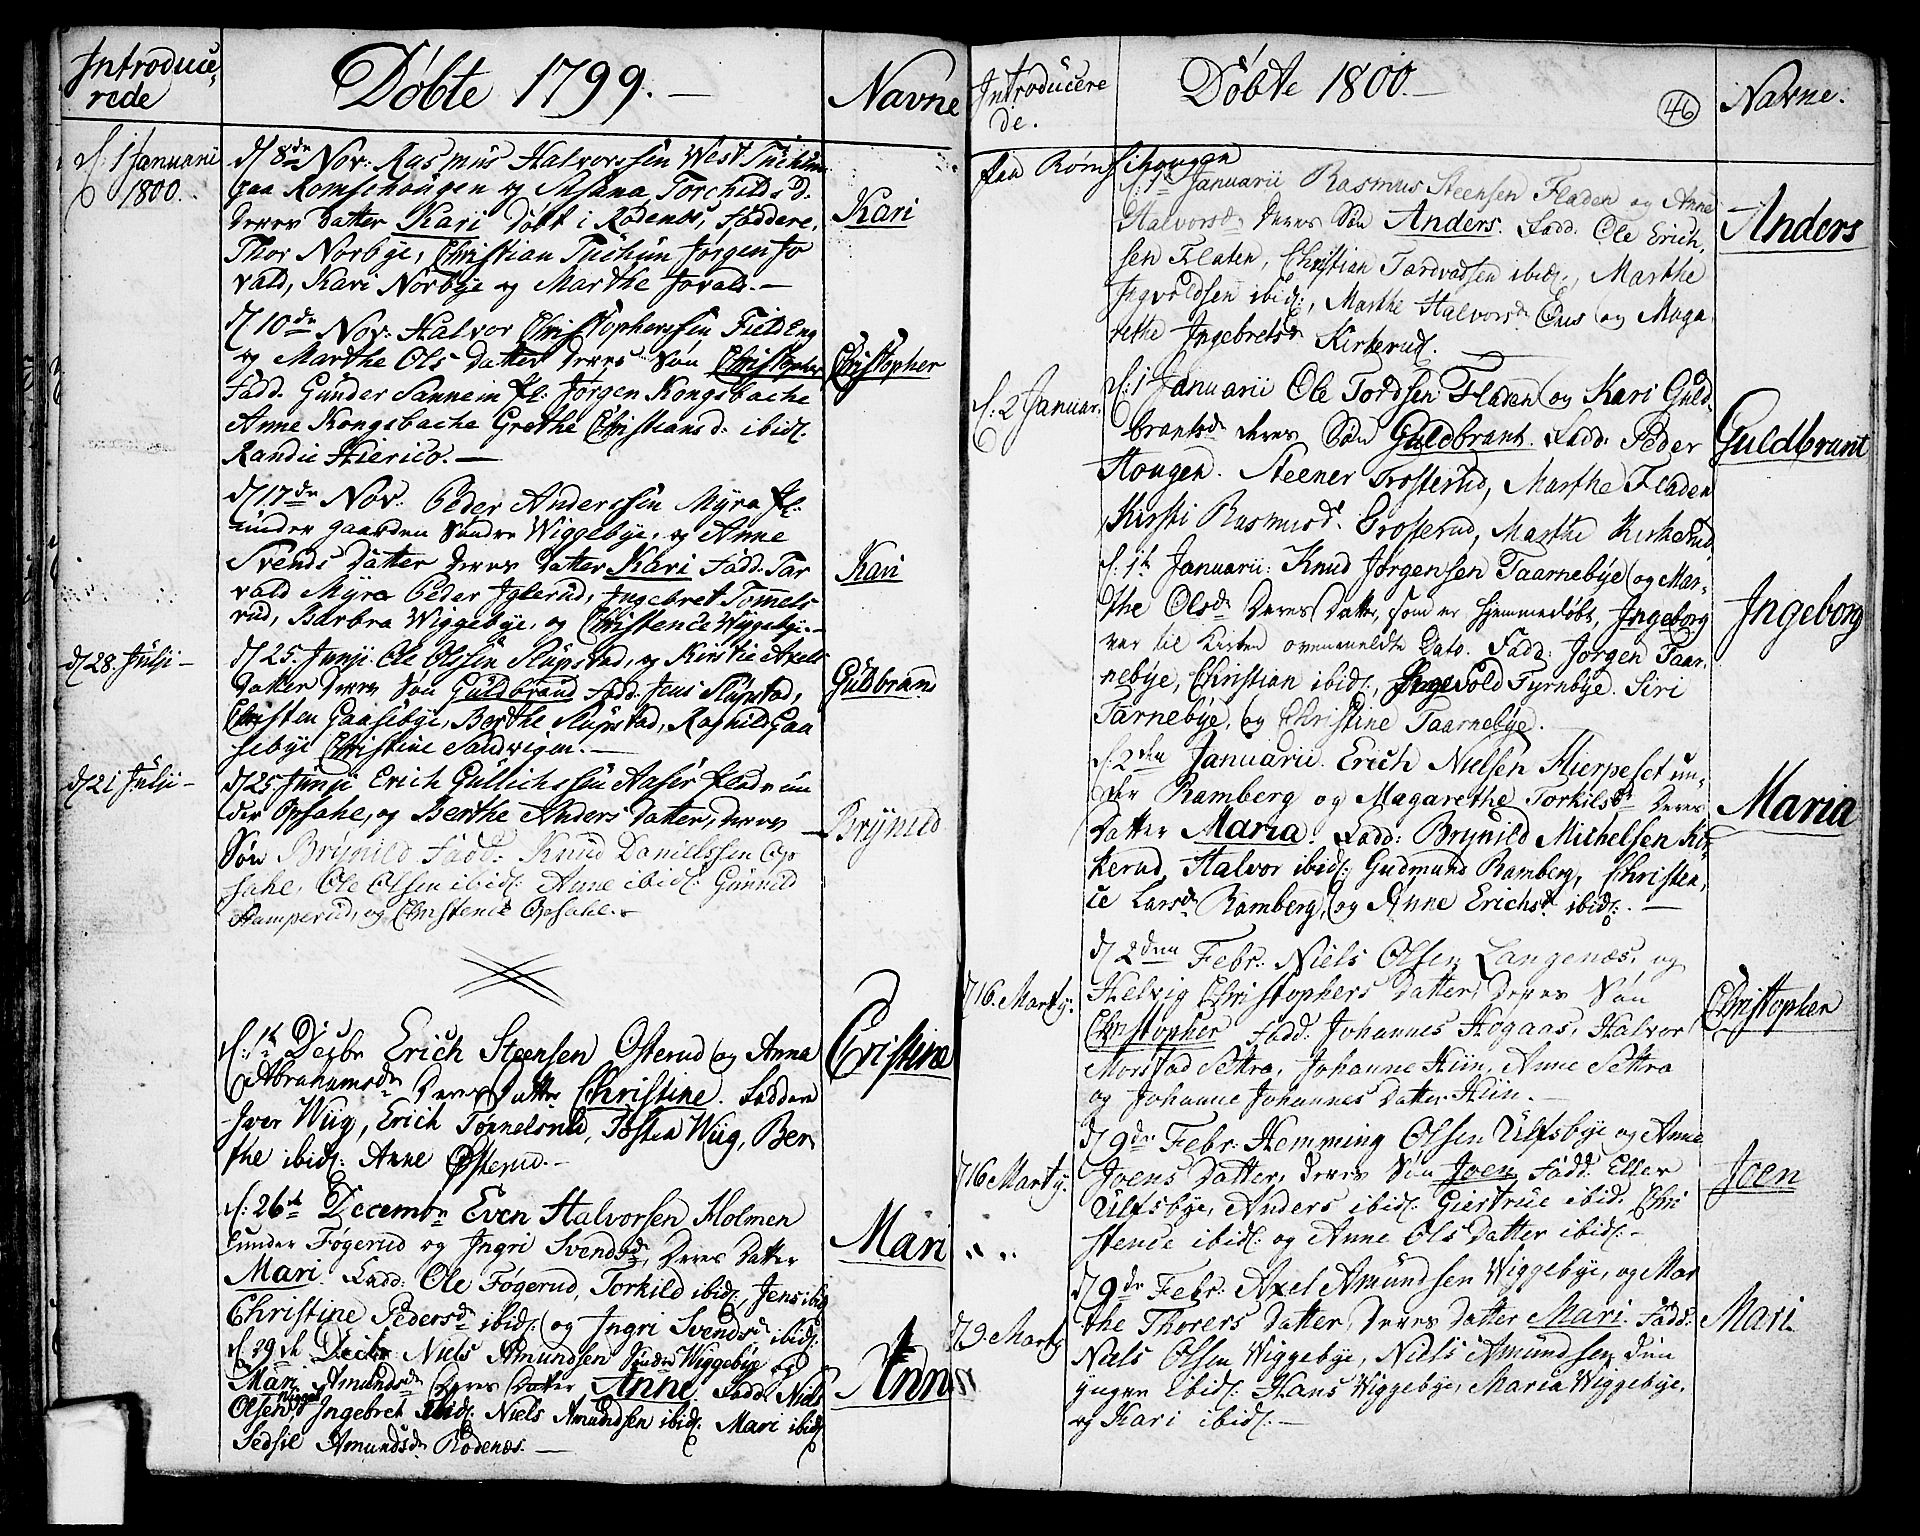 Introduce-
rede
Døbte 1799.
Navne
d. 1 Januarii
1800.
d/ 8de Nov: Rasmus Halvorssen West Tuchun
paa Romsehougen og Susana Torchilds D.
deres datter Kari døbt i Rødenæs, Faddere,
Thor Norbye, Christian Tuchun Jørgen Jo
vald, Kari Norbye og Marthe Jovald.
Kari
d/ 10de Nov: Halvor Christophersen Field Eng
og Marthe Ols Datter deres Søn Christopher
Fadd. Gunder Sannem fl: Jørgen Kongsbache
Anne Kongsbache Grethe Christiansd. ibid:
Randie Hierico.
Christopher
d/ 17de Nov: Peder Anderssen Myra fl:
under gaarden Søndre Wiggebye, og Anne
Svends Datter deres datter Kari Fadd: Tar
vald Myra Peder Iglerud, Ingebret Tommels
rud, Barbra Wiggebye, og Christence Wiggebye.
Kari
d/ 28. Julji
d/ 25. Junji Ole Olssen Slupstad, og Kirstie Axels
Datter deres Søn Guldbrand Fadd. Jens Slupstad,
Christen Gaasebye, Berthe Slupstad, Raghild Gaa
sebye Christine Sandvigen.
Guldbrand
d/ 21 Julji
d/ 25. Junji Erich Gullichssen Aaser Plads un
der Opsahe, og Berthe Anders Datter, deres
Søn Brynild Fadd: Knud Danielssen Op
sahe, Ole Olsen ibid: Anne ibid: Gunnild
Stamperud, og Christence Opsahl.
Brynild
d: 1te Decbr Erich Steensen Osterud og Anna
Abrahamsdr Deres Datter Christine. Faddere
Iver Wiig, Erich Tørnelsrud, Tosten Wiig, Ber
the ibid: Anne Østerud.
Cristine
d: 26te Decembr Even Halvorsen Holmen
under Føgerud og Ingri Svendsdr Deres Datter
Mari. Fadd: Ole Føgerud, Torkild ibid:, Jens ibid
Christine Pedersdr ibid: og Ingri Svendsdr ibid:
Mari
d. 29de Decbr Niels Amundsen Søndre Wiggebye og
Mari Amundsdr Deres Datter Anne. Fadd: Niels
Olsen Wiggeb. Ingebret ibid: Niels Amundsen ibid: Mari ibid:
Sedsil Amundsdr Rødenæs.
Anne
Introducere
de.
Døbte 1800.
46
Navne.
paa Rømsehougen
d: 1te Januarii Rasmus Steensen Fladen og Anne
Halvorsdr Deres Søn Anders. Fadd: Ole Erich,
sen Flaten, Christian Tardvadsen ibid:, Marthe
Ingvoldsen ibid:, Marthe Halvorsdr Enes og Maga
rethe Ingebretsdr Kirkerud.
Anders
d. 2 Januar.
d: 1 Januarii Ole Tordsen Fladen og Kari Guld-
brantsdr deres Søn Guldbrant. Fadd: Peder
Hougen. Steener Trosterud, Marthe Fladen
Kirsti Rasmusdr. Trosterud, Marthe Kirkerud
Guldbrant
d: 1te Januarii: Knud Jørgensen Taarnebye og Mar-
the Olsdr Deres Datter, som er hjemmedøbt, Ingeborg
var til Kirken ovenmeldte Dato. Fadd: Jørgen Taar
nebye, Christian ibid:, Ingevold Tyrnbye. Siri
Tarnebye, og Christine Taarnebye.
Ingeborg
d: 2den Januarii. Erich Nielsen Hierpeset un-
der Ramberg og Magarethe Torkilsdr Deres
Datter Maria. Fadd: Brynild Michelsen Kir-
kerud, Halvor ibid: Gudmund Ramberg, Christen,
ce Larsdr Ramberg, og Anne Erichsdr ibid:.
Maria
d/ 16. Martj:
d/ 2den Febr: Niels Olsen Langenæs, og
Helvig Christophers Datter, deres Søn
Christopher Fadd: Johannes Hogaas, Halvor
Morstad Settra, Johanne Hiin, Anne Settra
og Johanne Johannes Datter Hiin.
Christopher
d/ 16 Martj:
d/ 9de Febr: Hemming Olsen Ulfsbye og Anne
Joens Datter, deres Søn Joen, Fadd: Eller
Ulfsbye, Anders ibid: Giertrue ibid. Chri
stence ibid: og Anne Ols Datter ibid:
Joen
d/ 9. Martj
d/ 9de Febr: Axel Amundsen Wiggebye, og Mar
the Thorers Datter, deres datter Mari. Fadd:
Niels Olsen Wiggebye, Niels Amundsen, den
yngre ibid: Hans Wiggebye, Maria Wiggebye.
og Kari ibid:
Mari